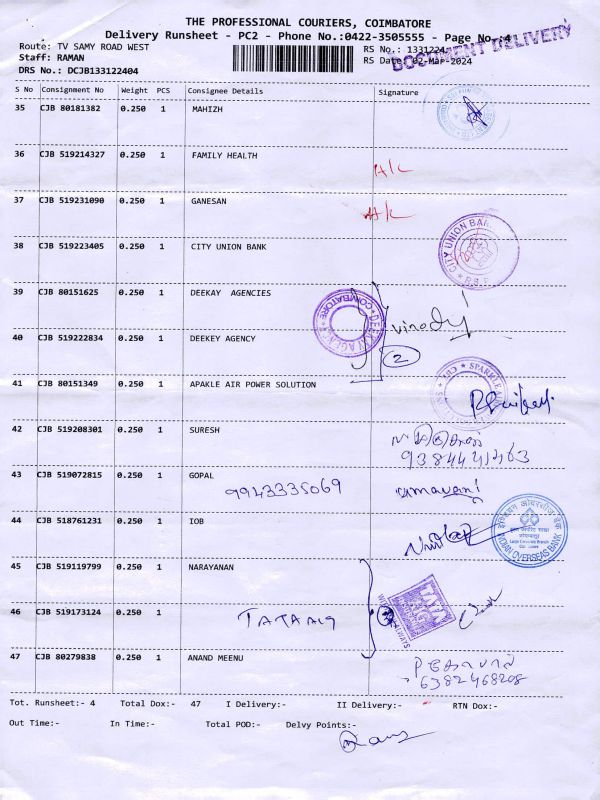 THE PROFESSIONAL COURIERS, COIMBATORE
Delivery Runsheet - PC2 - Phone No.:0422-3505555 - Page No.:4
Route: TV SAMY ROAD WEST RS No.: 1331224
Staff: RAMAN RS Date: 02-Mar-2024
DOCUMENT DELIVERY
DRS No.: DCJB133122404
S No Consignment No Weight PCS Consignee Details Signature
35 CJB 80181382 0.250 1 MAHIZH
36 CJB 519214327 0.250 1 FAMILY HEALTH
37 CJB 519231090 0.250 1 GANESAN
38 CJB 519223405 0.250 1 CITY UNION BANK
CITY UNION BANK
39 CJB 80151625 0.250 1 DEEKAY AGENCIES
COIMBATORE
40 CJB 519222834 0.250 1 DEEKEY AGENCY
2
41 CJB 80151349 0.250 1 APAKLE AIR POWER SOLUTION
42 CJB 519208301 0.250 1 SURESH
43 CJB 519072815 0.250 1 GOPAL
9943335069
44 CJB 518761231 0.250 1 IOB
INDIAN OVERSEAS BANK
45 CJB 519119799 0.250 1 NARAYANAN
46 CJB 519173124 0.250 1
TATA AIG
47 CJB 80279838 0.250 1 ANAND MEENU
6382468208
Tot. Runsheet:- 4 Total Dox:- 47 I Delivery:- II Delivery:- RTN Dox:-
Out Time:- In Time:- Total POD:- Delvy Points:-